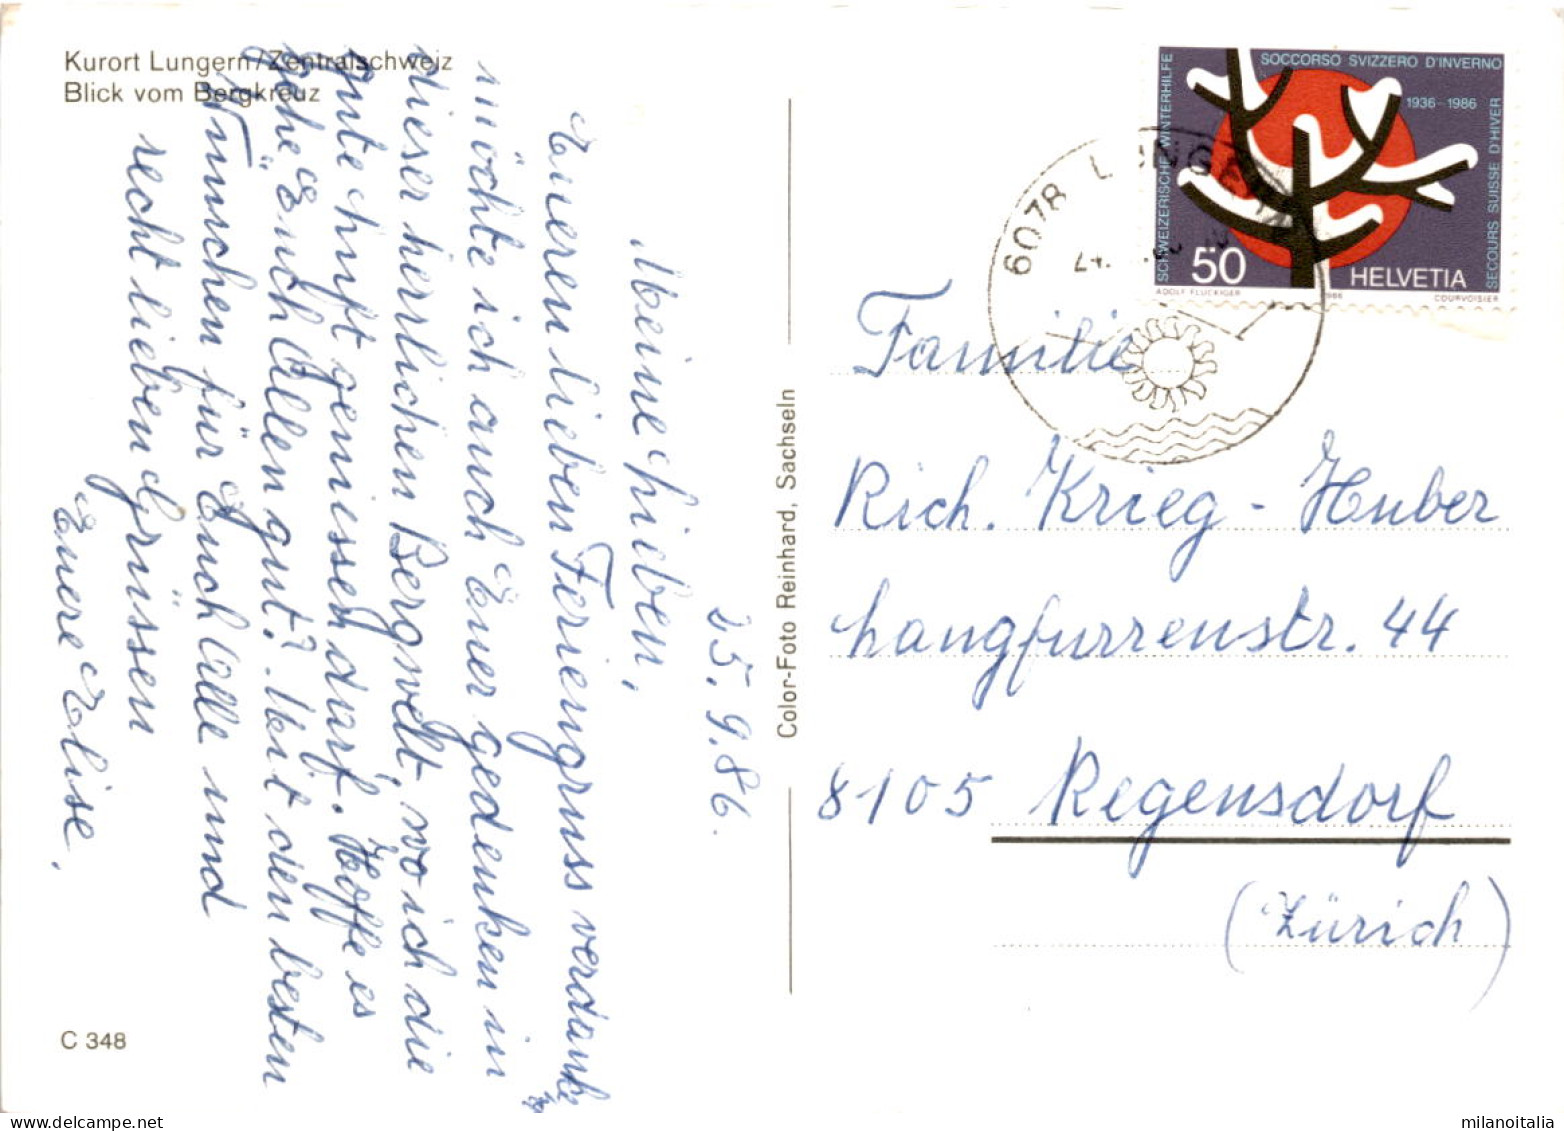 Kurort Lungern/Zentralschweiz
Blick vom Bergkreuz
25. 9. 86.
Meine Lieben,
Eueren lieben Feriengruss verdanke
möchte ich auch Euer gedenken in
dieser herrlichen Bergwelt, wo ich die
gute Luft geniessen darf. Hoffe es
gehe Euch Allen gut? Mit den besten
Wünschen für Euch Alle und
recht lieben Grüssen
Euere Elise.
C 348
Color-Foto Reinhard, Sachseln
SCHWEIZERISCHE WINTERHILFE
SOCCORSO SVIZZERO D'INVERNO
1936-1986
SECOURS SUISSE D'HIVER
50
HELVETIA
ADOLF FLÜCKIGER
1986
COURVOISIER
6078 LUNGERN
Familie
Rich. Krieg - Huber
Langfurrenstr. 44
8105 Regensdorf
(Zürich)
milanoitalia